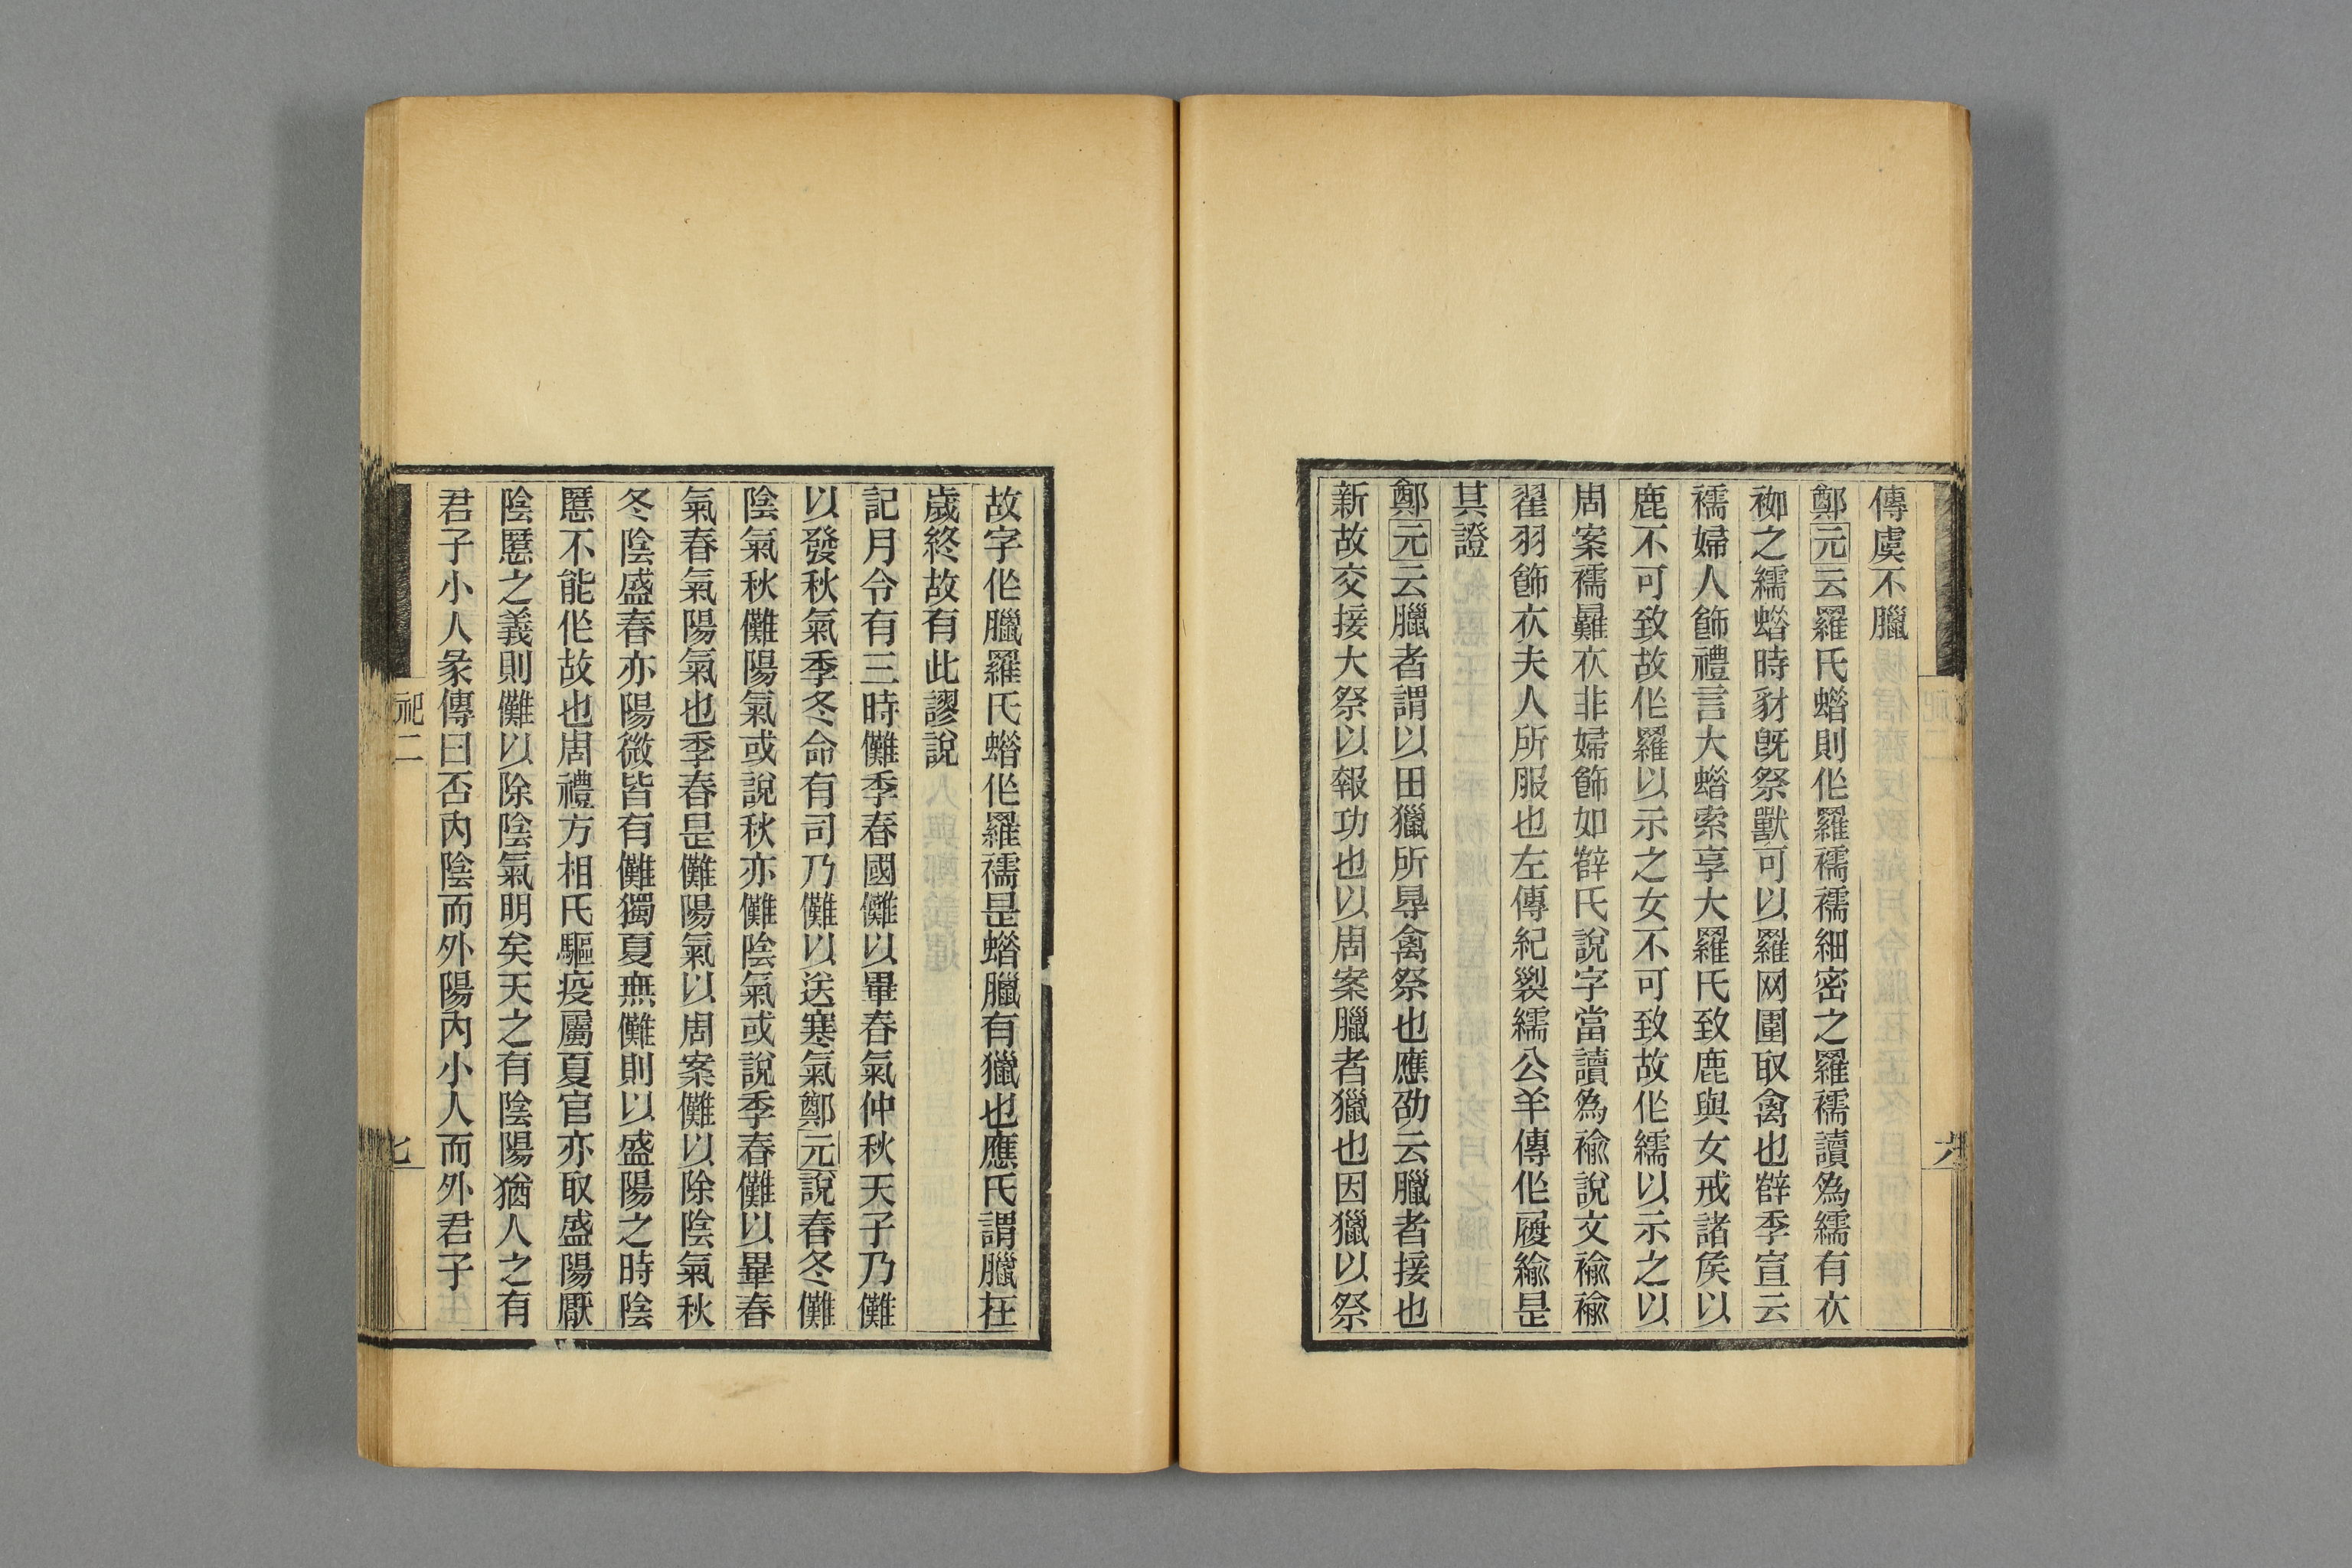 傳虞不臘
鄭元云羅氏蜡則作羅襦襦細密之羅襦讀爲繻有衣
袽之繻蜡時豺旣祭獸可以羅网圍取禽也薛季宣云
襦婦人飾禮言大蜡索享大羅氏致鹿與女戒諸矦以
鹿不可致故作羅以示之女不可致故作繻以示之以
周案襦難衣非婦飾如薛氏說字當讀爲褕說文褕褕
翟羽飾衣夫人所服也左傳紀裂繻公羊傳作履緰是
其證
鄭元云臘者謂以田獵所得禽祭也應劭云臘者接也
新故交接大祭以報功也以周案臘者獵也因獵以祭
故字作臘羅氏蜡作羅襦是蜡臘有獵也應氏謂臘在
歲終故有此謬說
記月令有三時儺季春國儺以畢春氣仲秋天子乃儺
以發秋氣季冬命有司乃儺以送寒氣鄭元說春冬儺
陰氣秋儺陽氣或說秋亦儺陰氣或說季春儺以畢春
氣春氣陽氣也季春是儺陽氣以周案儺以除陰氣秋
冬陰盛春亦陽微皆有儺獨夏無儺則以盛陽之時陰
慝不能作故也周禮方相氏驅疫屬夏官亦取盛陽厭
陰慝之義則儺以除陰氣明矣天之有陰陽猶人之有
君子小人彖傳曰否內陰而外陽內小人而外君子
祀二
七
六